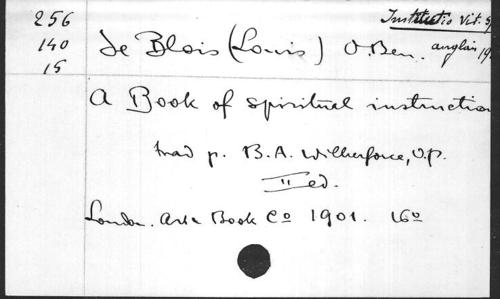 256
140
15
Institutio Vit. Sp
de Blois (Louis) O.Ben. anglais 19
A Book of spiritual instruction
trad p. B.A. Wilberforce, O.P.
II ed.
London. Art & Book Co 1901. 16o